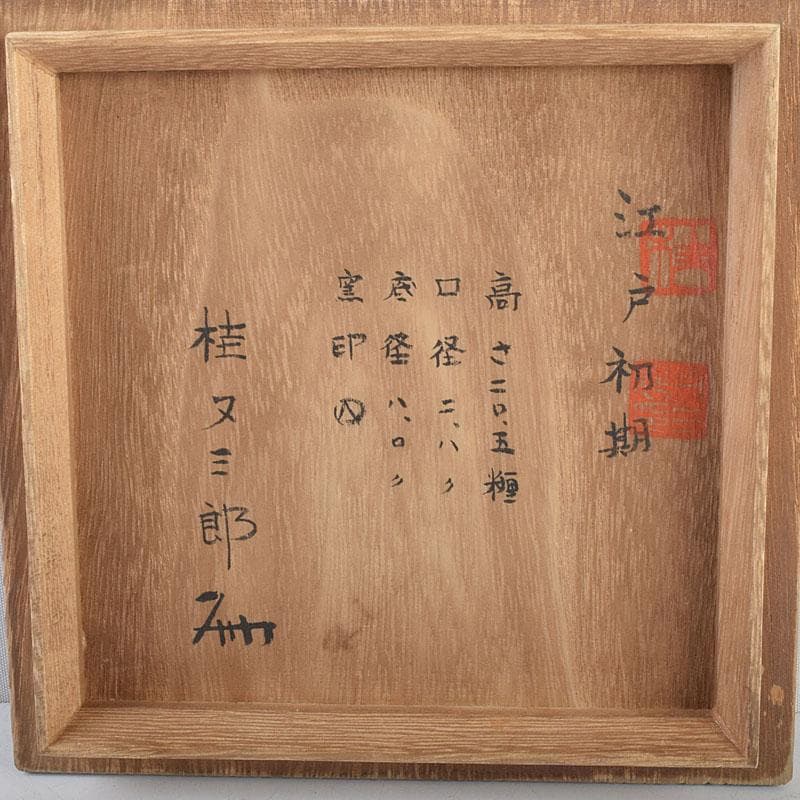 江戸初期
高さ二〇、五糎
口径二、八〃
底径八、〇〃
窯印
桂又三郎